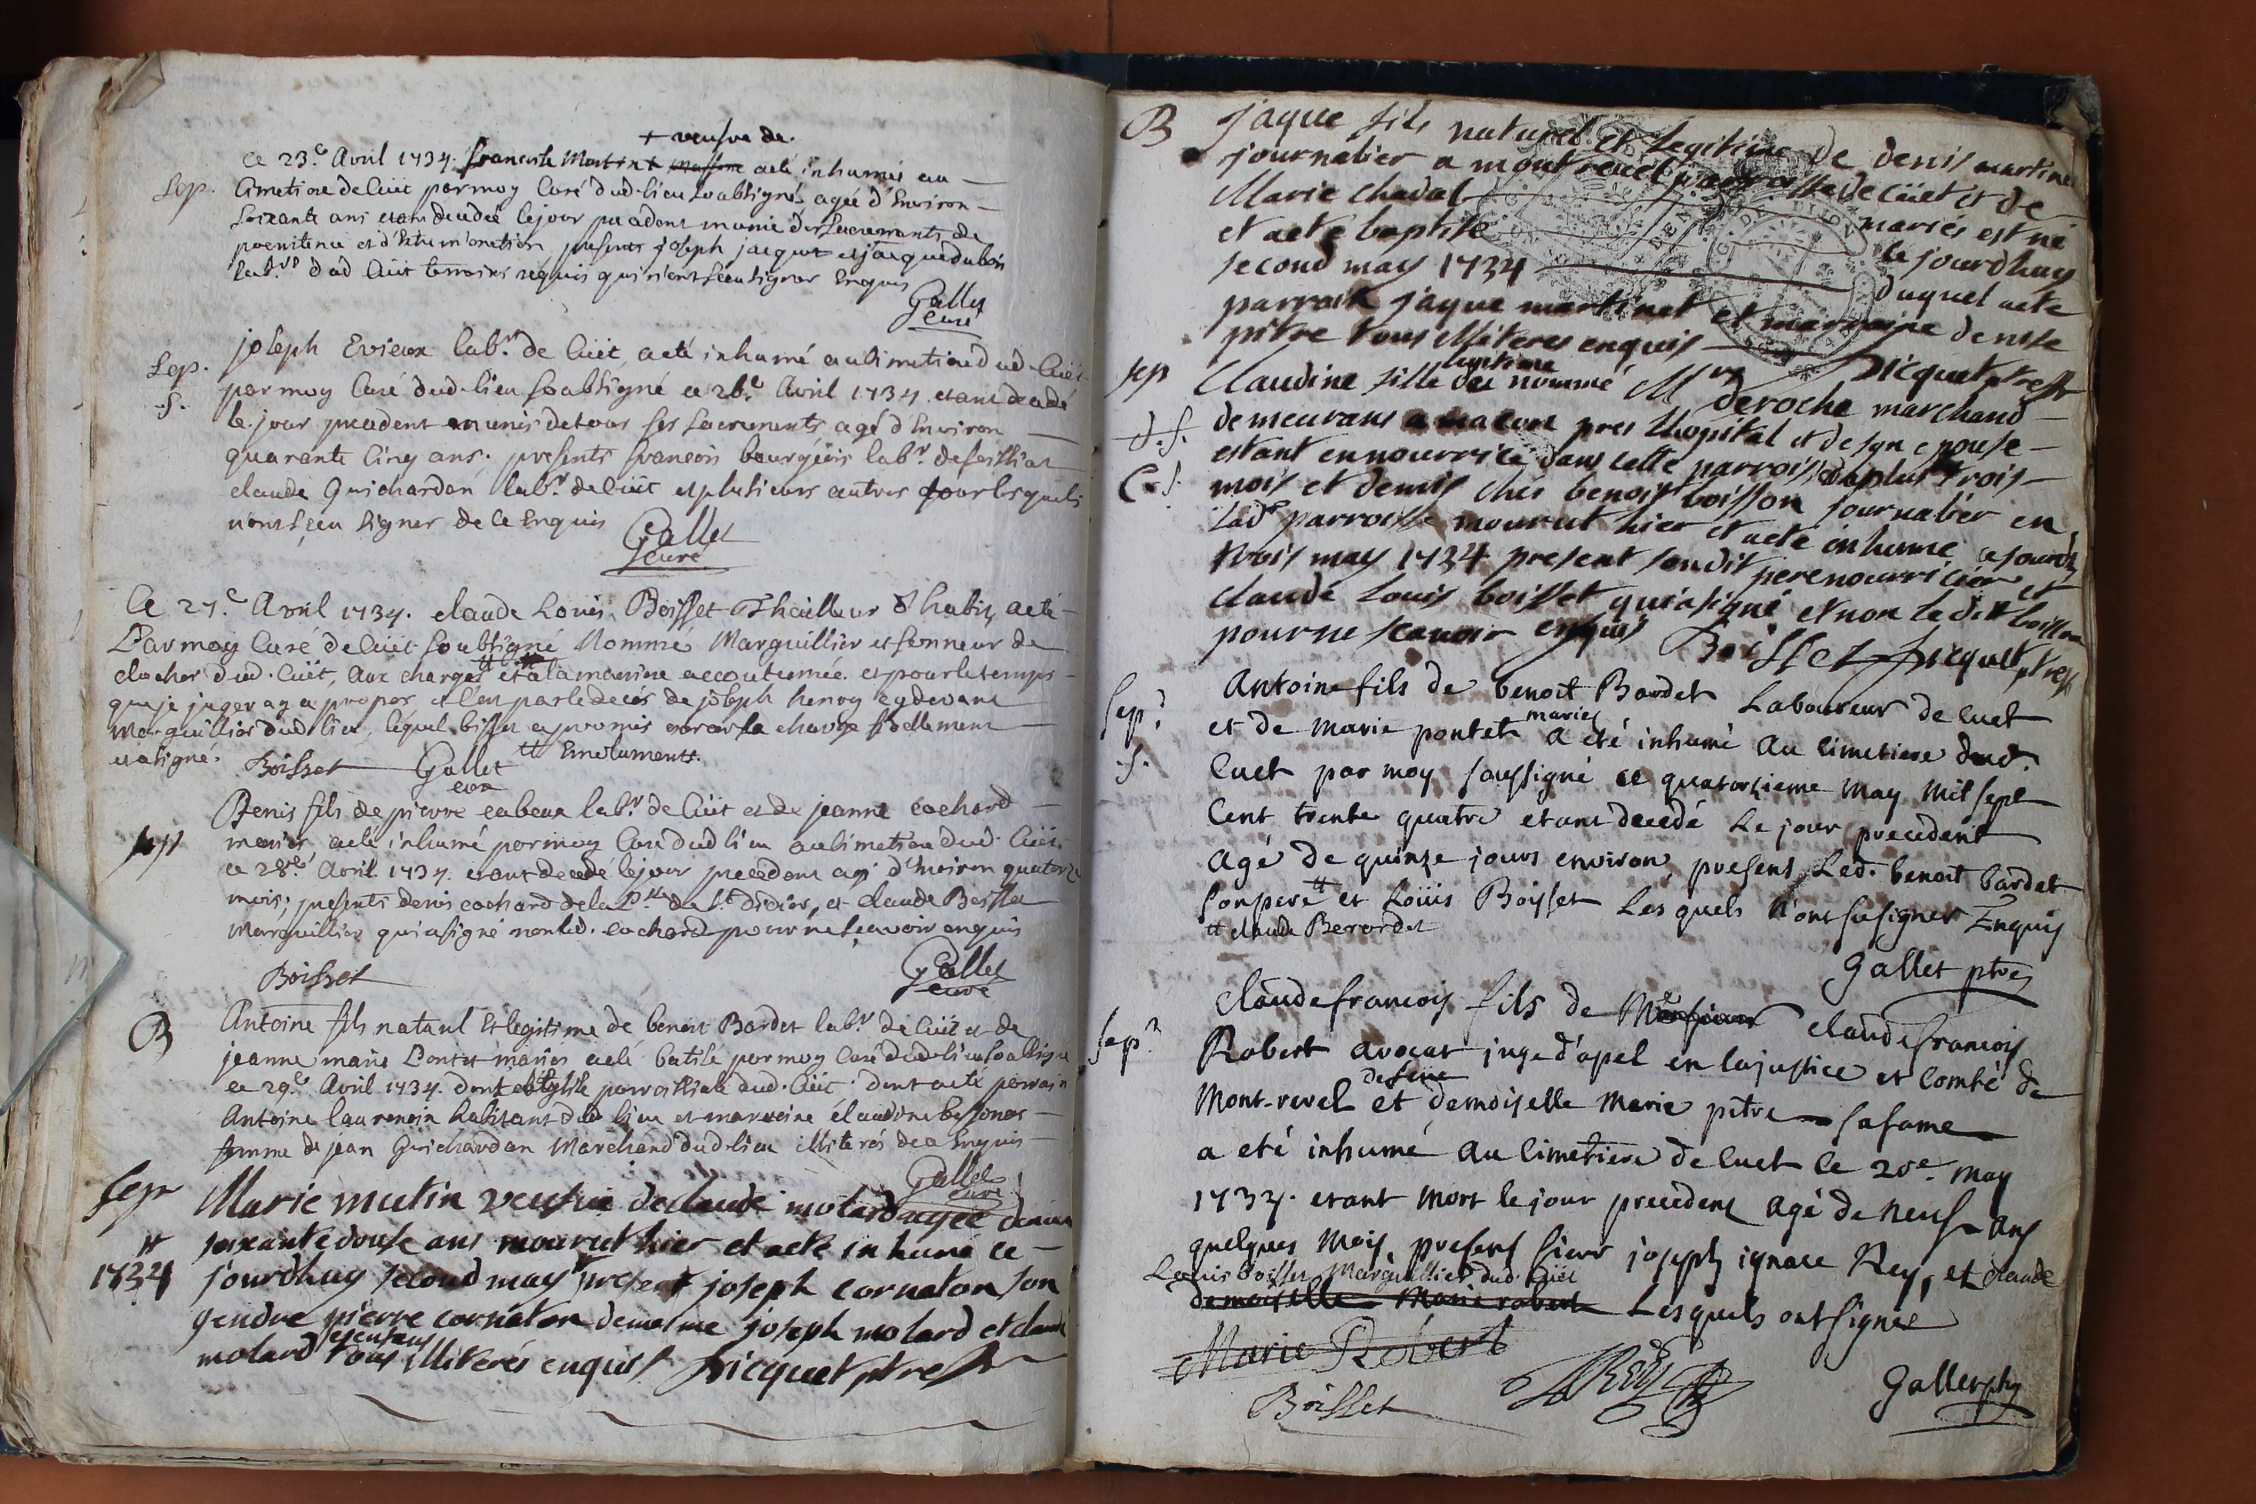 + veufve de.
Ce 23.e Avril 1734. francoise Martin + aeté inhumée au
Sep.
Cimetiere de Cüet par moy Curé dud. lieu soubsigné agée d'Environ
soixante ans etant decedée le jour precedent munie des Sacrements de
poenitence et d'Extremonction, presents joseph jacquet et jacque dubois
lab.rs dud Cüet temoins requis qui n'ont sceu signer Enquis
Gallet
curé
joseph Evieux lab.r de Cüet aeté inhumé au Cimetiere dud. Cüet
Sep.
.s.
par moy Curé dud. lieu soubsigné ce 26.e Avril 1734 etant decedé
le jour precedent munis de tous ses Sacrements agé d'Environ
quarante Cinq ans. presents francois bourgeois lab.r de foissiat
claude Guichardan lab.r de Cüet et plusieurs autres lesquels
n'ont sceu signer de ce Enquis
Gallet
curé
Ce 27.e Avril 1734. claude Louis Boisset Thailleur d'habits aeté
Par moy Curé de Cüet soubsigné Nommé Marguillier et sonneur de
clocher dud. Cüet, aux charges tt et a la maniere accoutumée et pour le temps
que je jugeray a propos et l'on parle decés de joseph henry cydevant
marguillier dud lieu, lequel bisset a promis exercer sa charge fidellement
et a signé.
Boisset
Gallet
cura
tt Emoluments.
Denis fils de pierre cabeux lab.r de Cüet et de jeanne cochard
Sep
mariés aeté inhumé par moy Curé dud lieu au Cimetiere dud. Cüet
ce 28.e Avril 1734. etant decedé le jour precedent agé d'Environ quatorze
mois; presents denis cochard de la P.sse de S.t didier, et claude Boisset
Marguillier qui a signé non led. cochard pour ne sçavoir enquis
Boisset
Gallet
curé
B
Antoine fils naturel et legitime de benoit Bardet lab.r de Cüet et de
jeanne marie Pontet mariés aeté batisé par moy Curé dud. lieu soubsigné
ce 29.e Avril 1734. dans l'Eglise parroissiale dud. Cüet. dont aeté parrain
Antoine laurencin habitant dud lieu et marraine claudine bessonet
femme de jean Guichardan Marchand dud. lieu illiterés de ce Enquis
Gallet
curé
Sep
tt
1734
Marie mutin veufve de claude molard agée denviron
soixante douse ans mourut hier et aeté inhumé ce
jourdhuy second may present joseph cornaton son
gendre pierre cornaton demesme joseph molard et claude
molard ses enfans tous illiterés enquis Picquet ptre
B
jaque fils naturel et legitime de denis martinet
journalier a montrevel parroisse de cüet et de
Marie chadal mariés est né
et aeté baptisé le jourdhuy
second may 1734 duquel aete
parrain jaque martinet et marraine denise
pitre tous illiteres enquis Picquet ptre
sep
d.s.
C.s.
Claudine fille legitime du nommé M.re deroche marchand
demeurans a macon pres lhopital et de son epouse
estant en nourrice dans cette parroisse depuis trois
mois et demis chés benoist boisson journalier en
lad.e parroisse mourut hier et aeté inhume ce jourdh
trois may 1734 present sondit pere nourricier et
claude louis boisset qui a signé et non ledit boisson
pour ne scavoir enquis
Boisset Picquet ptre
Sep.e
.s.
Antoine fils de benoit Bardet Laboureur de cuet
et de Marie pontet mariés a été inhumé au cimetiere dud.
Cuet par moy soussigné ce quatorzieme May mil sept
Cent trente quatre etant decedé Le jour precedent
agé de quinze jours environ, presens Led. benoit bardet
son pere tt et Loüis Boisset Les quels n'ont su signer Enquis
tt claude Berordet
Gallet ptre
Sep.re
claude francois fils de Me claude francois
Robert avocat juge d'apel en la justice et Comté de
Mont-revel et de feüe demoiselle Marie pitre sa fame
a eté inhumé au cimetiere de cuet le 20.e May
1734. etant mort le jour precedent agé de neuf ans
quelques mois, presens sieur joseph ignace Rey, et claude
Louis boisset Marguillier dud. Cüet
demoiselle Marie robert Lesquels ont signés
Marie Robert
Boisset
Rey
Gallet ptre